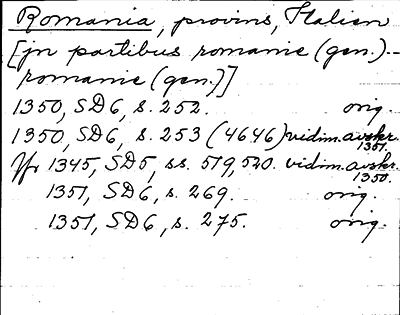 Romania, provins, Italien
[jn partibus romanie (gen.) --
romanie (gen.)]
1350, SD6, s. 252. orig.
1350, SD6, s. 253 (4646) vidim. avskr. 1351.
Jfr 1345, SD5, ss. 519, 520. vidim. avskr. 1350.
1351, SD6, s. 269. orig.
1351, SD6, s. 275. orig.